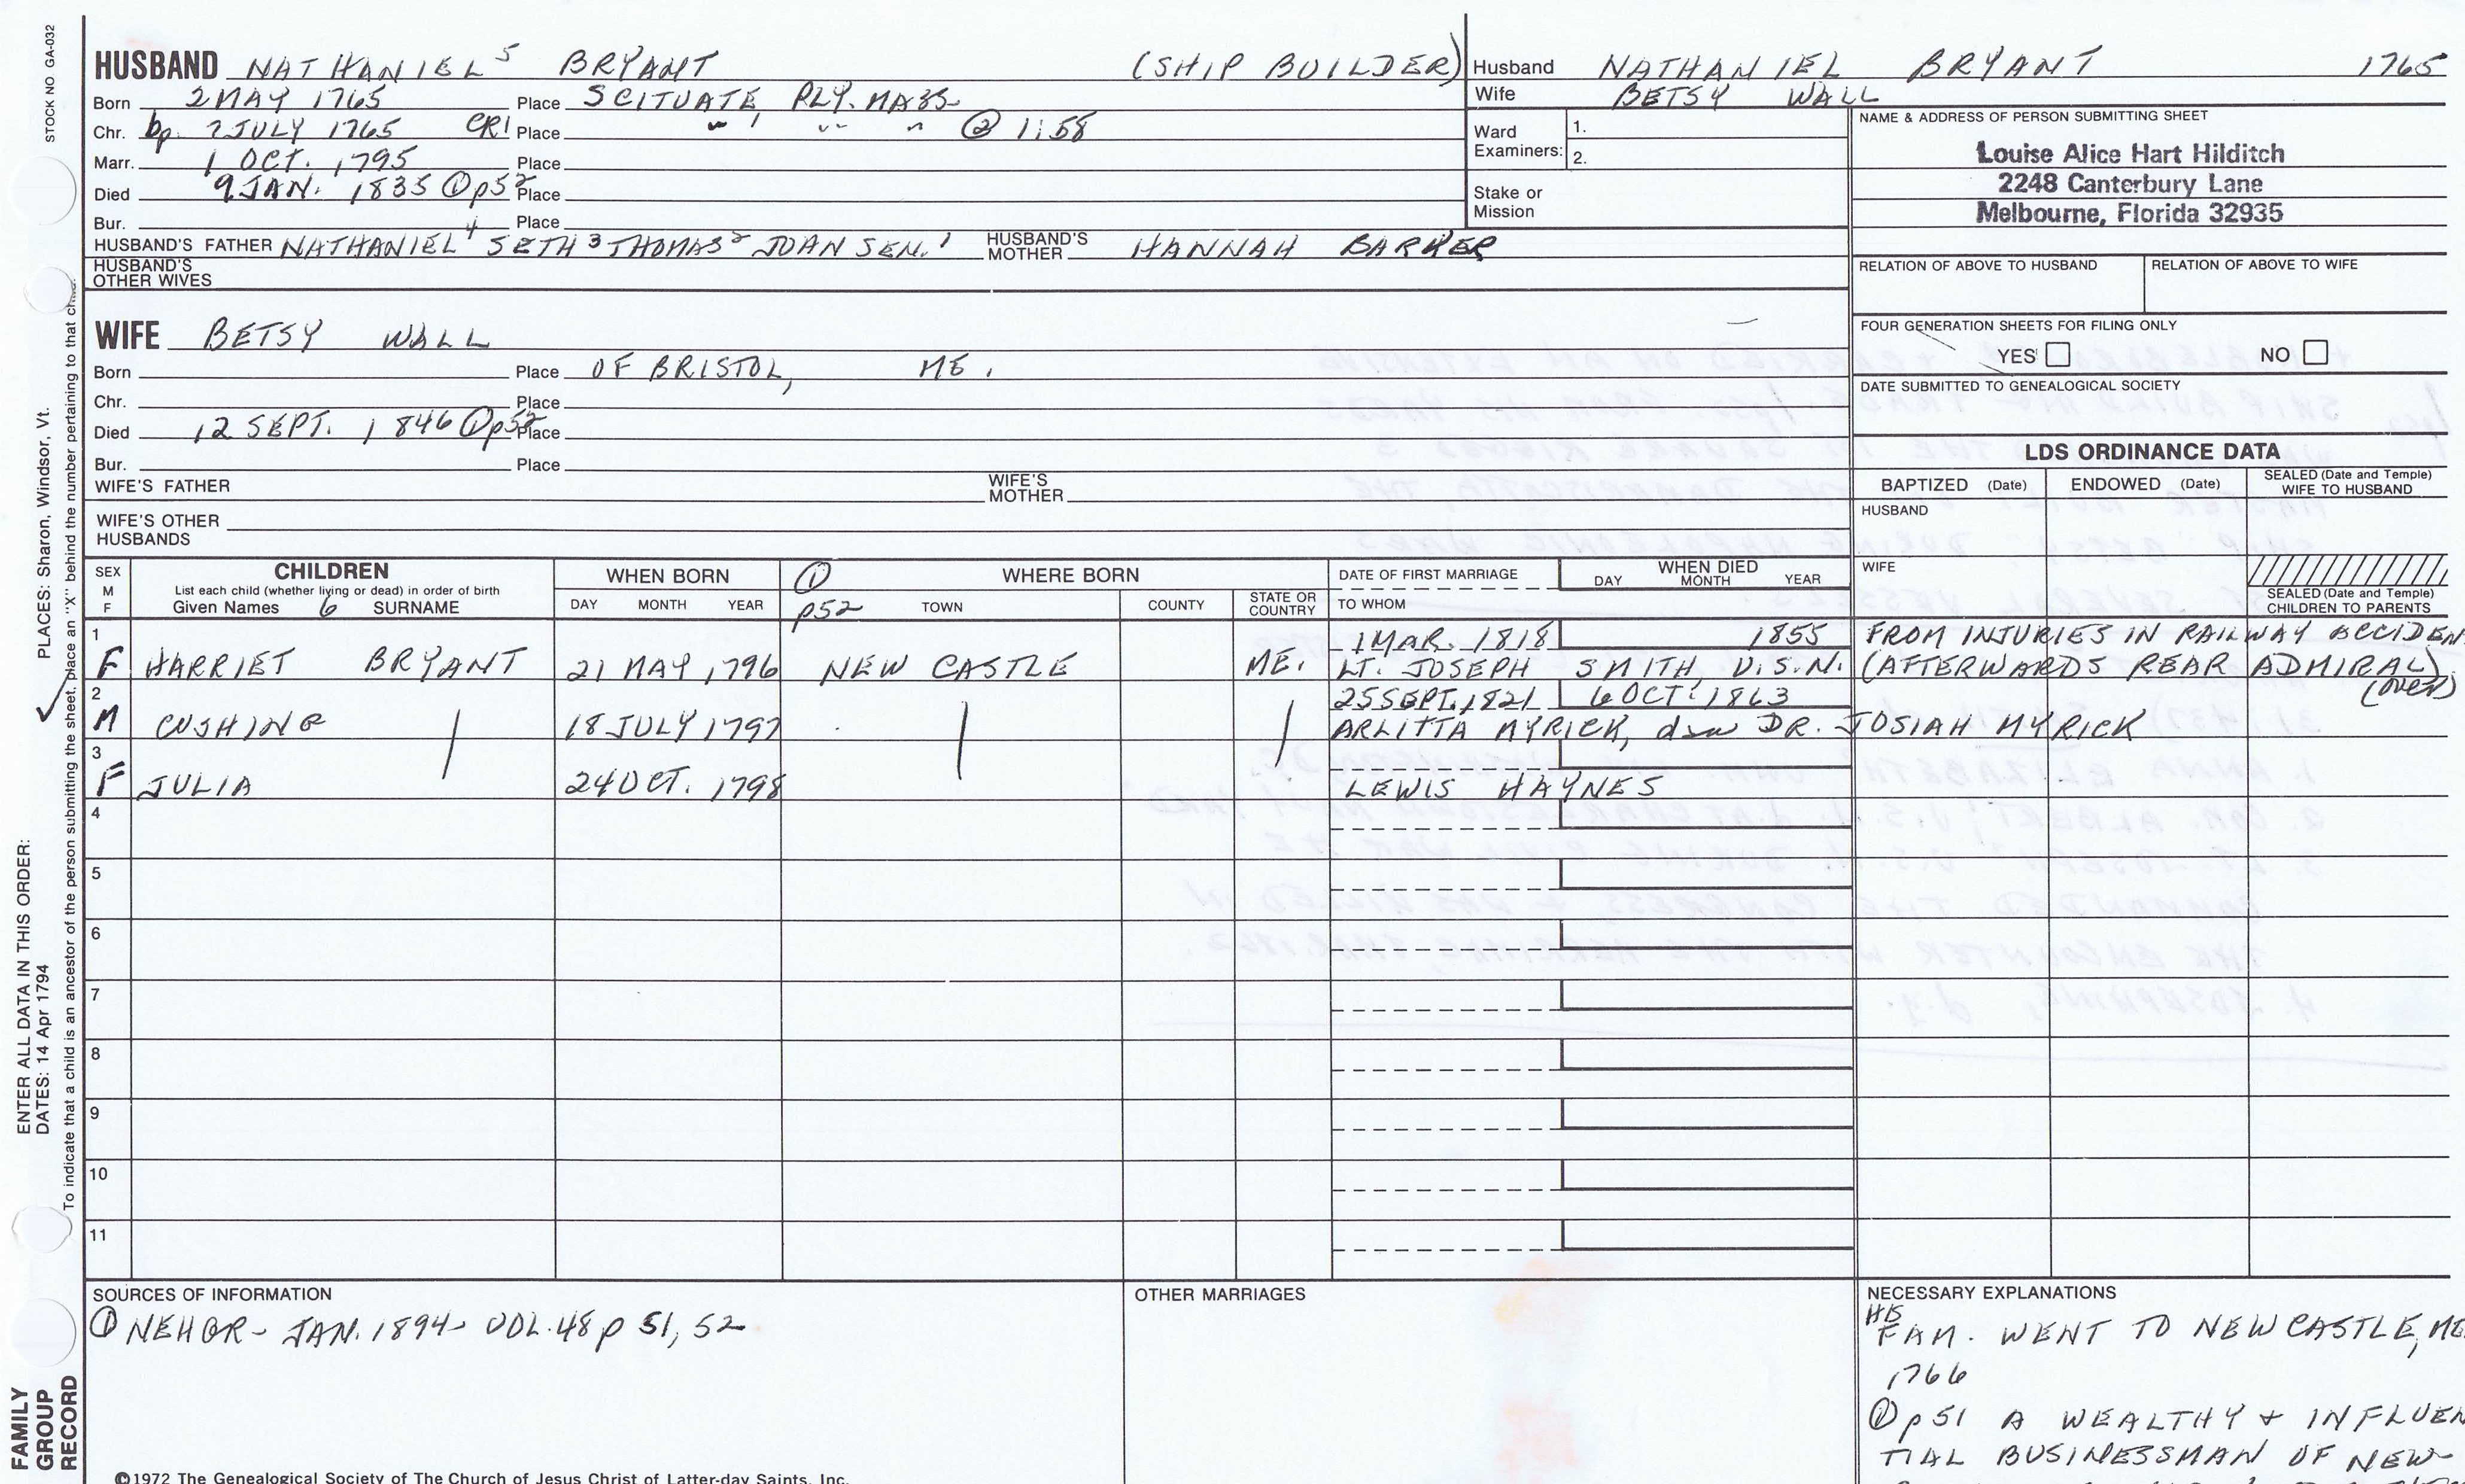 STOCK NO GA-032
HUSBAND NATHANIEL 5 BRYANT (SHIP BUILDER)
Born 2 MAY 1765 Place SCITUATE, PLY. MASS
Chr. bp. 7 JULY 1765 CR1 Place " " " @ 1:58
Marr. 1 OCT. 1795 Place
Died 9 JAN. 1835 ① p52 Place
Bur. Place
HUSBAND'S FATHER NATHANIEL 4 SETH 3 THOMAS 2 JOAN SEN. 1 HUSBAND'S MOTHER HANNAH BARKER
HUSBAND'S OTHER WIVES
Husband NATHANIEL BRYANT 1765
Wife BETSY WALL
Ward Examiners: 1.
2.
Stake or Mission
NAME & ADDRESS OF PERSON SUBMITTING SHEET
Louise Alice Hart Hilditch
2248 Canterbury Lane
Melbourne, Florida 32935
RELATION OF ABOVE TO HUSBAND RELATION OF ABOVE TO WIFE
FOUR GENERATION SHEETS FOR FILING ONLY
YES NO
DATE SUBMITTED TO GENEALOGICAL SOCIETY
WIFE BETSY WALL
Born Place OF BRISTOL, ME.
Chr. Place
Died 12 SEPT. 1846 ① p52 Place
Bur. Place
WIFE'S FATHER WIFE'S MOTHER
WIFE'S OTHER HUSBANDS
LDS ORDINANCE DATA
BAPTIZED (Date) ENDOWED (Date) SEALED (Date and Temple) WIFE TO HUSBAND
HUSBAND
WIFE
SEALED (Date and Temple) CHILDREN TO PARENTS
SEX M F
CHILDREN
List each child (whether living or dead) in order of birth
Given Names 6 SURNAME
WHEN BORN
DAY MONTH YEAR
① p52 WHERE BORN
TOWN COUNTY STATE OR COUNTRY
DATE OF FIRST MARRIAGE
TO WHOM
WHEN DIED
DAY MONTH YEAR
1 1 MAR. 1818 1855 FROM INJURIES IN RAILWAY ACCIDEN
F HARRIET BRYANT 21 MAY 1796 NEW CASTLE ME. LT. JOSEPH SMITH, U.S.N. (AFTERWARDS REAR ADMIRAL)
(OVER)
2 25 SEPT. 1821 6 OCT. 1863
M CUSHING 18 JULY 1797 ARLITTA MYRICK, dau DR. JOSIAH MYRICK
3
F JULIA 24 OCT. 1798 LEWIS HAYNES
4
5
6
7
8
9
10
11
SOURCES OF INFORMATION
① NEHGR - JAN. 1894 - VOL. 48 p 51, 52
OTHER MARRIAGES
NECESSARY EXPLANATIONS
HIS
FAM. WENT TO NEWCASTLE, ME
1766
① p 51 A WEALTHY + INFLUEN
TIAL BUSINESSMAN OF NEW-
©1972 The Genealogical Society of The Church of Jesus Christ of Latter-day Saints, Inc.
FAMILY GROUP RECORD
ENTER ALL DATA IN THIS ORDER:
DATES: 14 Apr 1794
PLACES: Sharon, Windsor, Vt.
To indicate that a child is an ancestor of the person submitting the sheet, place an "X" behind the number pertaining to that child.